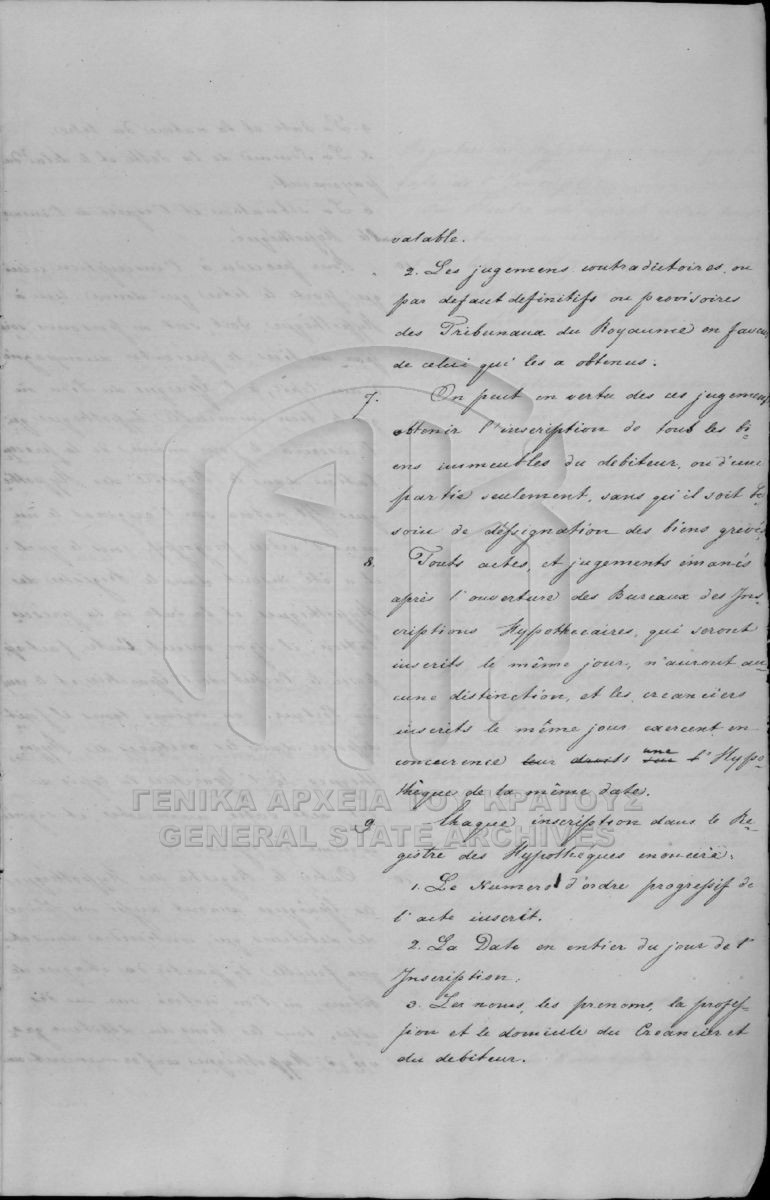 valable.
2. Les jugemens contradictoires, ou
par defaut definitifs ou provisoires
des Tribunaux du Royaume en faveur
de celui qui les a obtenus.
7. On peut en vertu des ces jugemens
obtenir l'inscription de tout les bi-
ens immeubles du debiteur, ou d'une
partie seulement, sans qu'il soit be-
soin de désignation des biens grevés.
8. Touts actes, et jugements émanés
après l'ouverture des Bureaux des Ins-
criptions Hypothecaires, qui seront
inscrits le même jour, n'auront au-
cune distinction, et les creanciers
inscrits le même jour exercent en
concurrence leur droits une sur l'Hypo-
thèques de la même date.
ΓΕΝΙΚΑ ΑΡΧΕΙΑ ΤΟΥ ΚΡΑΤΟΥΣ
GENERAL STATE ARCHIVES
9 Chaque inscription dans le Re-
gistre des Hypothèques enoncera:
1. Le Numero d'ordre progressif de
l'acte inscrit.
2. La Date en entier du jour de l'
Inscription.
3. Les noms, les prenoms, la profes-
sion et le domicile du Creancier et
du debiteur.